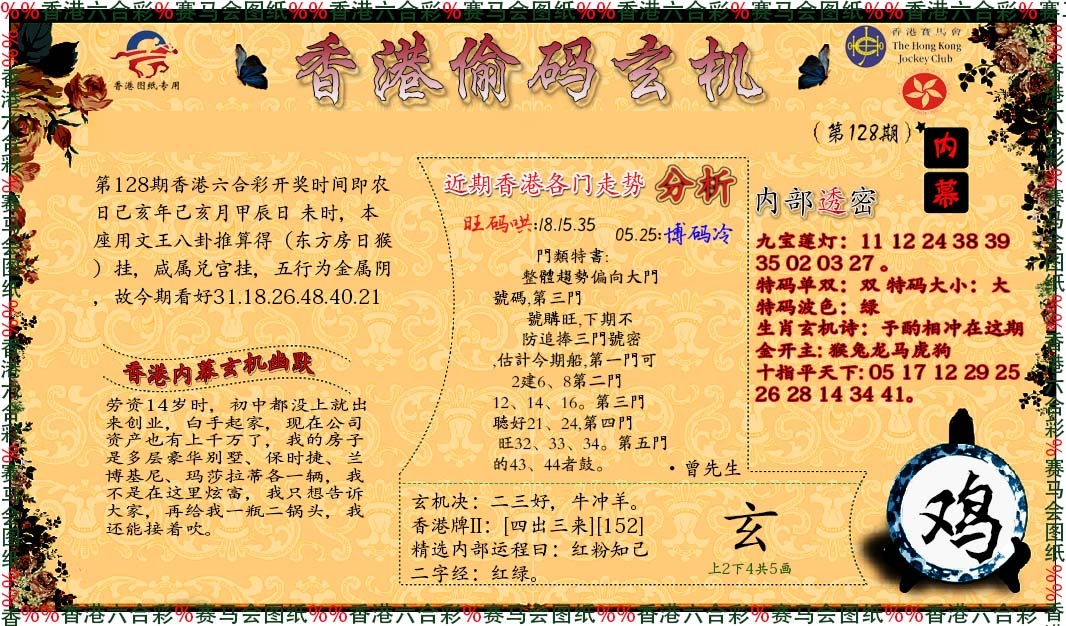 %%香港六合彩%赛马会图纸%%香港六合彩%赛马会图纸%%香港六合彩%赛马会图纸%%香港六合彩%赛
香港图纸专用
香港偷码玄机
香港賽馬會
The Hong Kong
Jockey Club
(第128期)
内
幕
第128期香港六合彩开奖时间即农
日己亥年己亥月甲辰日 未时，本
座用文王八卦推算得（东方房日猴
）挂，咸属兑宫挂，五行为金属阴
，故今期看好31.18.26.48.40.21
香港内幕玄机幽默
劳资14岁时，初中都没上就出
来创业，白手起家，现在公司
资产也有上千万了，我的房子
是多层豪华别墅、保时捷、兰
博基尼、玛莎拉蒂各一辆，我
不是在这里炫富，我只想告诉
大家，再给我一瓶二锅头，我
还能接着吹。
近期香港各门走势 分析
旺码哄:18.15.35
05.25:博码冷
門類特書:
整體趨勢偏向大門
號碼,第三門
號購旺,下期不
防追捧三門號密
,估計今期船,第一門可
2建6、8第二門
12、14、16。第三門
聽好21、24,第四門
旺32、33、34。第五門
的43、44者鼓。
·曾先生
玄机决：二三好，牛冲羊。
香港牌II：[四出三来][152]
精选内部运程曰：红粉知己
二字经：红绿。
玄
上2下4共5画
内部透密
九宝莲灯：11 12 24 38 39
35 02 03 27 。
特码单双：双 特码大小：大
特码波色：绿
生肖玄机诗：予酌相冲在这期
金开主: 猴兔龙马虎狗
十指平天下: 05 17 12 29 25
26 28 14 34 41。
鸡
香%%香港六合彩%赛马会图纸%%香港六合彩%赛马会图纸%%香港六合彩%赛马会图纸%%香港六合彩%